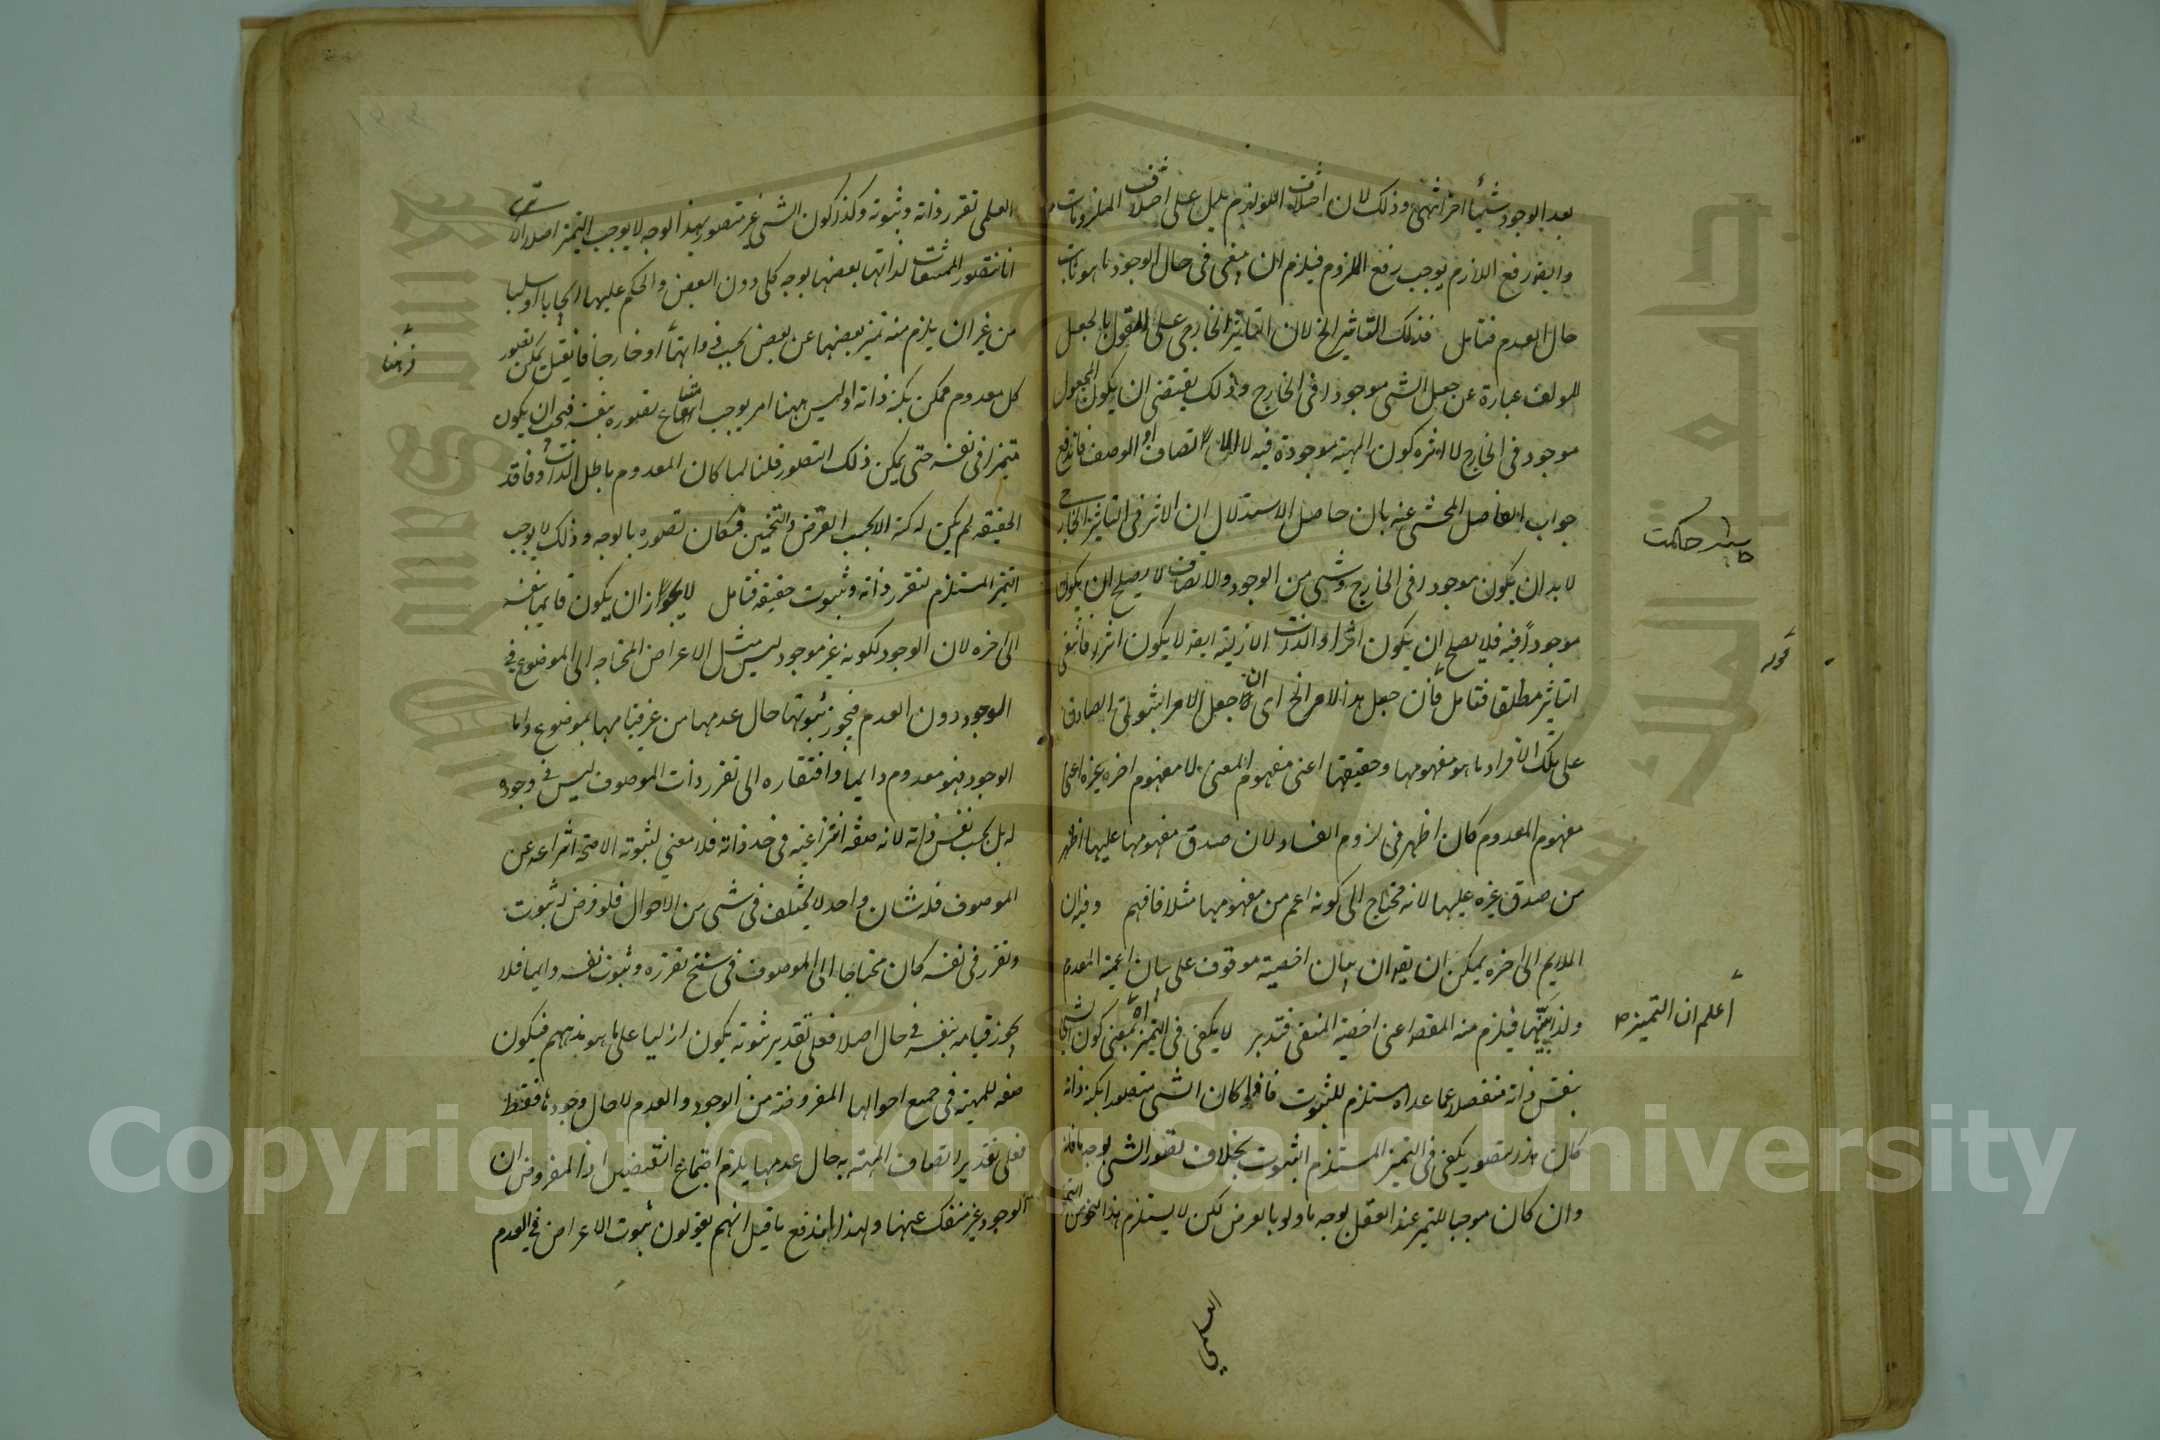 بعد الوجود شيئا اخر انتهى وذلك لان اختلاف اللوازم يدل على اختلاف الملزومات
وايضا رفع اللازم يوجب رفع الملزوم فيلزم ان ينفى في حال الوجود ما هو ثابت
حال العدم فتامل فذلك التاثير الخ لان التاثير الخارجي على القول بالجعل
المولف عبارة عن جعل الشي موجودا في الخارج وذلك يقتضي ان يكون المجعول
موجود في الخارج لا اثره كون المهية موجودة فيه لا اتصاف الموصف فاندفع
جواب الفاضل المحشي عنه بان حاصل الاستدلال ان الاثر في التاثير الخارجي
لا بد ان يكون موجود في الخارج وشي من الوجود والاتصاف لا يصلح ان يكون
موجودا فيه فلا يصلح ان يكون اثرا والذات الازلية ايضا لا يكون اثرا فانتفى
التاثير مطلقا فتامل فان جعل هذا الامر الخ اي ان جعل الامر الثبوتي الصادق
على تلك الافراد ما هو مفهومها وحقيقتها اعني مفهوم المعنى لا مفهوم اخر غيره اعني
مفهوم المعدوم كان اظهر في لزوم الفساد لان صدق مفهومها عليها اظهر
من صدق غيره عليها لانه محتاج الى كونه اعم من مفهومها مثلا فافهم وفيه ان
الملايم الى اخره يمكن ان يقال ان بيان اخصية موقوف على بيان اعمية المعدم
ولذا بينها فيلزم منه المقصد اعني اخصية المنفى فتدبر لا يكفي في التميز اه بمعنى كون الشي
بنفس ذاته منفصلا عما عداه مستلزم للثبوت فاذا كان الشي متصورا بكنه ذاته
كان هذا التصور يكفي في التميز المستلزم الثبوت بخلاف تصور الشي بوجه ما فانه
وان كان موجبا للتميز عند العقل بوجه ما ولو بالعرض لكن لا يستلزم هذا النحو من التميز
العلمي
حاسد حاكمت
قوله
اعلم ان التميز
العلمي تقرر ذاته وثبوته وكذا كون الشي غير متصور بهذا الوجه لا يوجب التميز اصلا الا ترى
انا نتصور الممتنعات لذاتها بعضها بوجه كلي دون البعض والحكم عليها ايجابا او سلبا
من غير ان يلزم منه تميز بعضها عن بعض بحسب ذواتها او خارجا فان قيل يمكن تصور
ذهنا
كل معدوم ممكن بكنه ذاته اذ ليس ههنا امر يوجب امتناع تصوره بنفسه فيجب ان يكون
متميزا في نفسه حتى يمكن ذلك التصور قلنا لما كان المعدوم باطل الذات وفاقد
الحقيقة لم يكن له كنه الا بحسب الفرض والتخمين فكان تصوره بالوجه وذلك لا يوجب
التميز المستلزم لتقرر ذاته وثبوت حقيقة فتامل لا يجوز ان يكون قايما بنفسه
الى اخره لان الوجود لكونه غير موجود ليس مثل الاعراض المحتاجة الى الموضوع في
الوجود دون العدم فيجوز ثبوتها حال عدمها من غير قيامها بموضوع واما
الوجود فهو معدوم دايما وافتقاره الى تقرر ذات الموصوف ليس في وجود
له بل بحسب نفس ذاته لانه صفة انتزاعية في حد ذاته فلا معنى لثبوته الا صحة انتزاعه عن
الموصوف فله شان واحد لا يختلف في شي من الاحوال فلو فرض له ثبوت
وتقرر في نفسه كان محتاجا الى الموصوف في سنخ تقرره وثبوت نفسه دايما فلا
يجوز قيامه بنفسه في حال اصلا فعلى تقدير ثبوته يكون ازليا على ما هو مذهبهم فيكون
صفة للمهية في جميع احوالها المفروضة من الوجود والعدم لا حال وجودها فقط
فعلى تقدير اتصاف المهية به حال عدمها يلزم اجتماع النقيضين اذ المفروض ان
الوجود غير منفك عنها ولهذا يندفع ما قيل انهم يقولون بثبوت الاعراض في العدم
Copyright © King Saud University